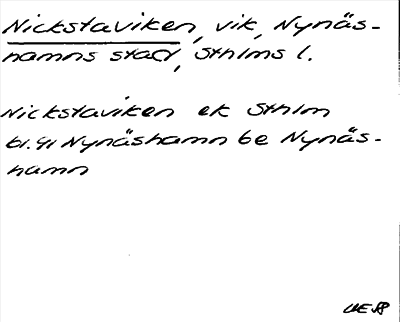 Nickstaviken, vik, Nynäs-
hamns stad, Sthlms l.
Nickstaviken ek Sthlm
bl. 91 Nynäshamn be Nynäs-
hamn